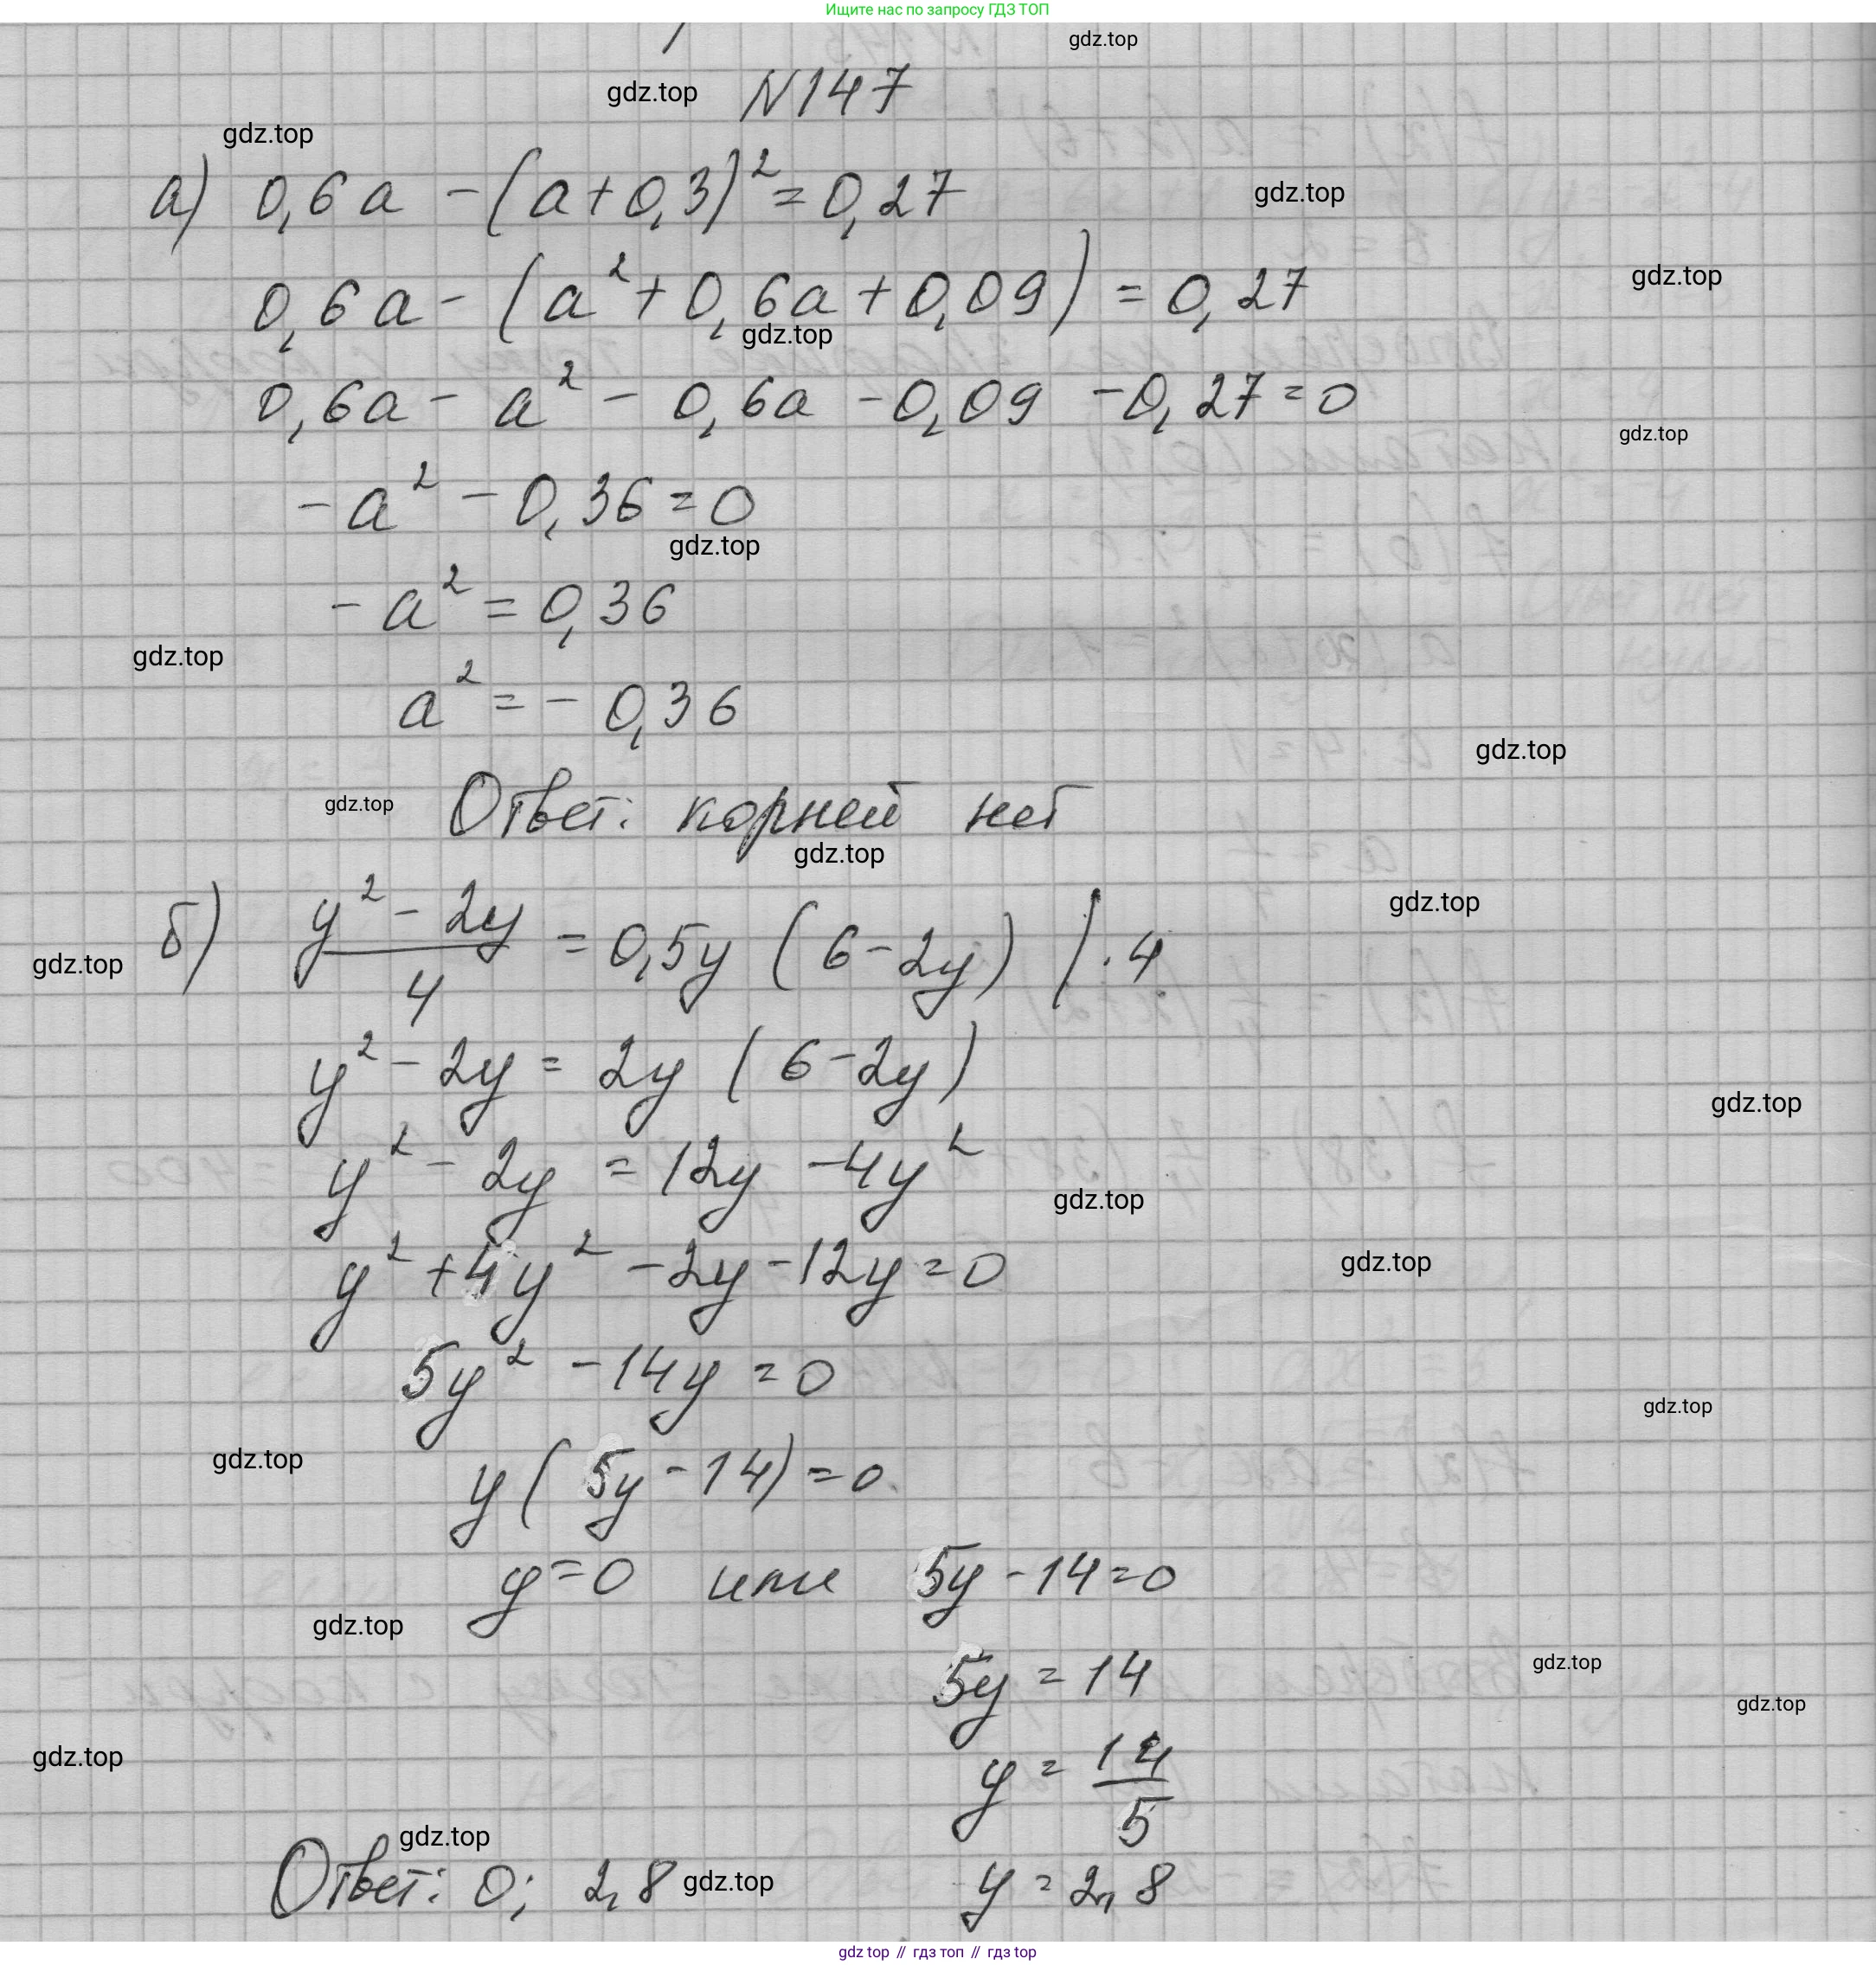 Ищите нас по запросу ГДЗ ТОП
gdz.top
gdz.top N147
gdz.top
а) 0,6a - (a+0,3)² = 0,27
gdz.top
0,6a - (a² + 0,6a + 0,09) = 0,27
gdz.top
gdz.top
0,6a - a² - 0,6a - 0,09 - 0,27 = 0
gdz.top
-a² - 0,36 = 0
gdz.top
-a² = 0,36
gdz.top
a² = - 0,36
gdz.top
gdz.top Ответ: корней нет
gdz.top
gdz.top
б) (y² - 2y)/4 = 0,5y (6-2y) | · 4
gdz.top
y² - 2y = 2y (6-2y)
gdz.top
y² - 2y = 12y - 4y²
gdz.top
y² + 4y² - 2y - 12y = 0
gdz.top
5y² - 14y = 0
gdz.top
y(5y - 14) = 0
gdz.top
y = 0 или 5y - 14 = 0
gdz.top
5y = 14
gdz.top
gdz.top
y = 14/5
gdz.top
gdz.top
Ответ: 0; 2,8 gdz.top y = 2,8
gdz top // гдз топ // гдз top